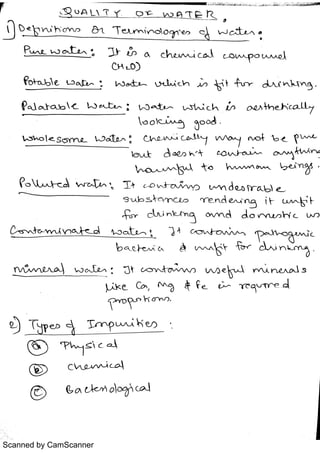 QUALITY OF WATER.
1) Definitions Or Terminologies of water:
Pure water: It is a chemical compound
(H2O)
Potable Water: Water which is fit for drinking.
Palatable Water: Water which is aesthetically
looking good.
Wholesome Water: Chemically may not be pure
but doesn't contain anything
harmful to human beings.
Polluted water: It contains undesirable
substances rendering it unfit
for drinking and domestic us
Contaminated water: It contains pathogenic
bacteria & unfit for drinking.
mineral water: It contains useful minerals
like Ca, Mg & Fe in required
proportions.
2) Types of Impurities:
a Physical
b Chemical
c Bacteriological
Scanned by CamScanner